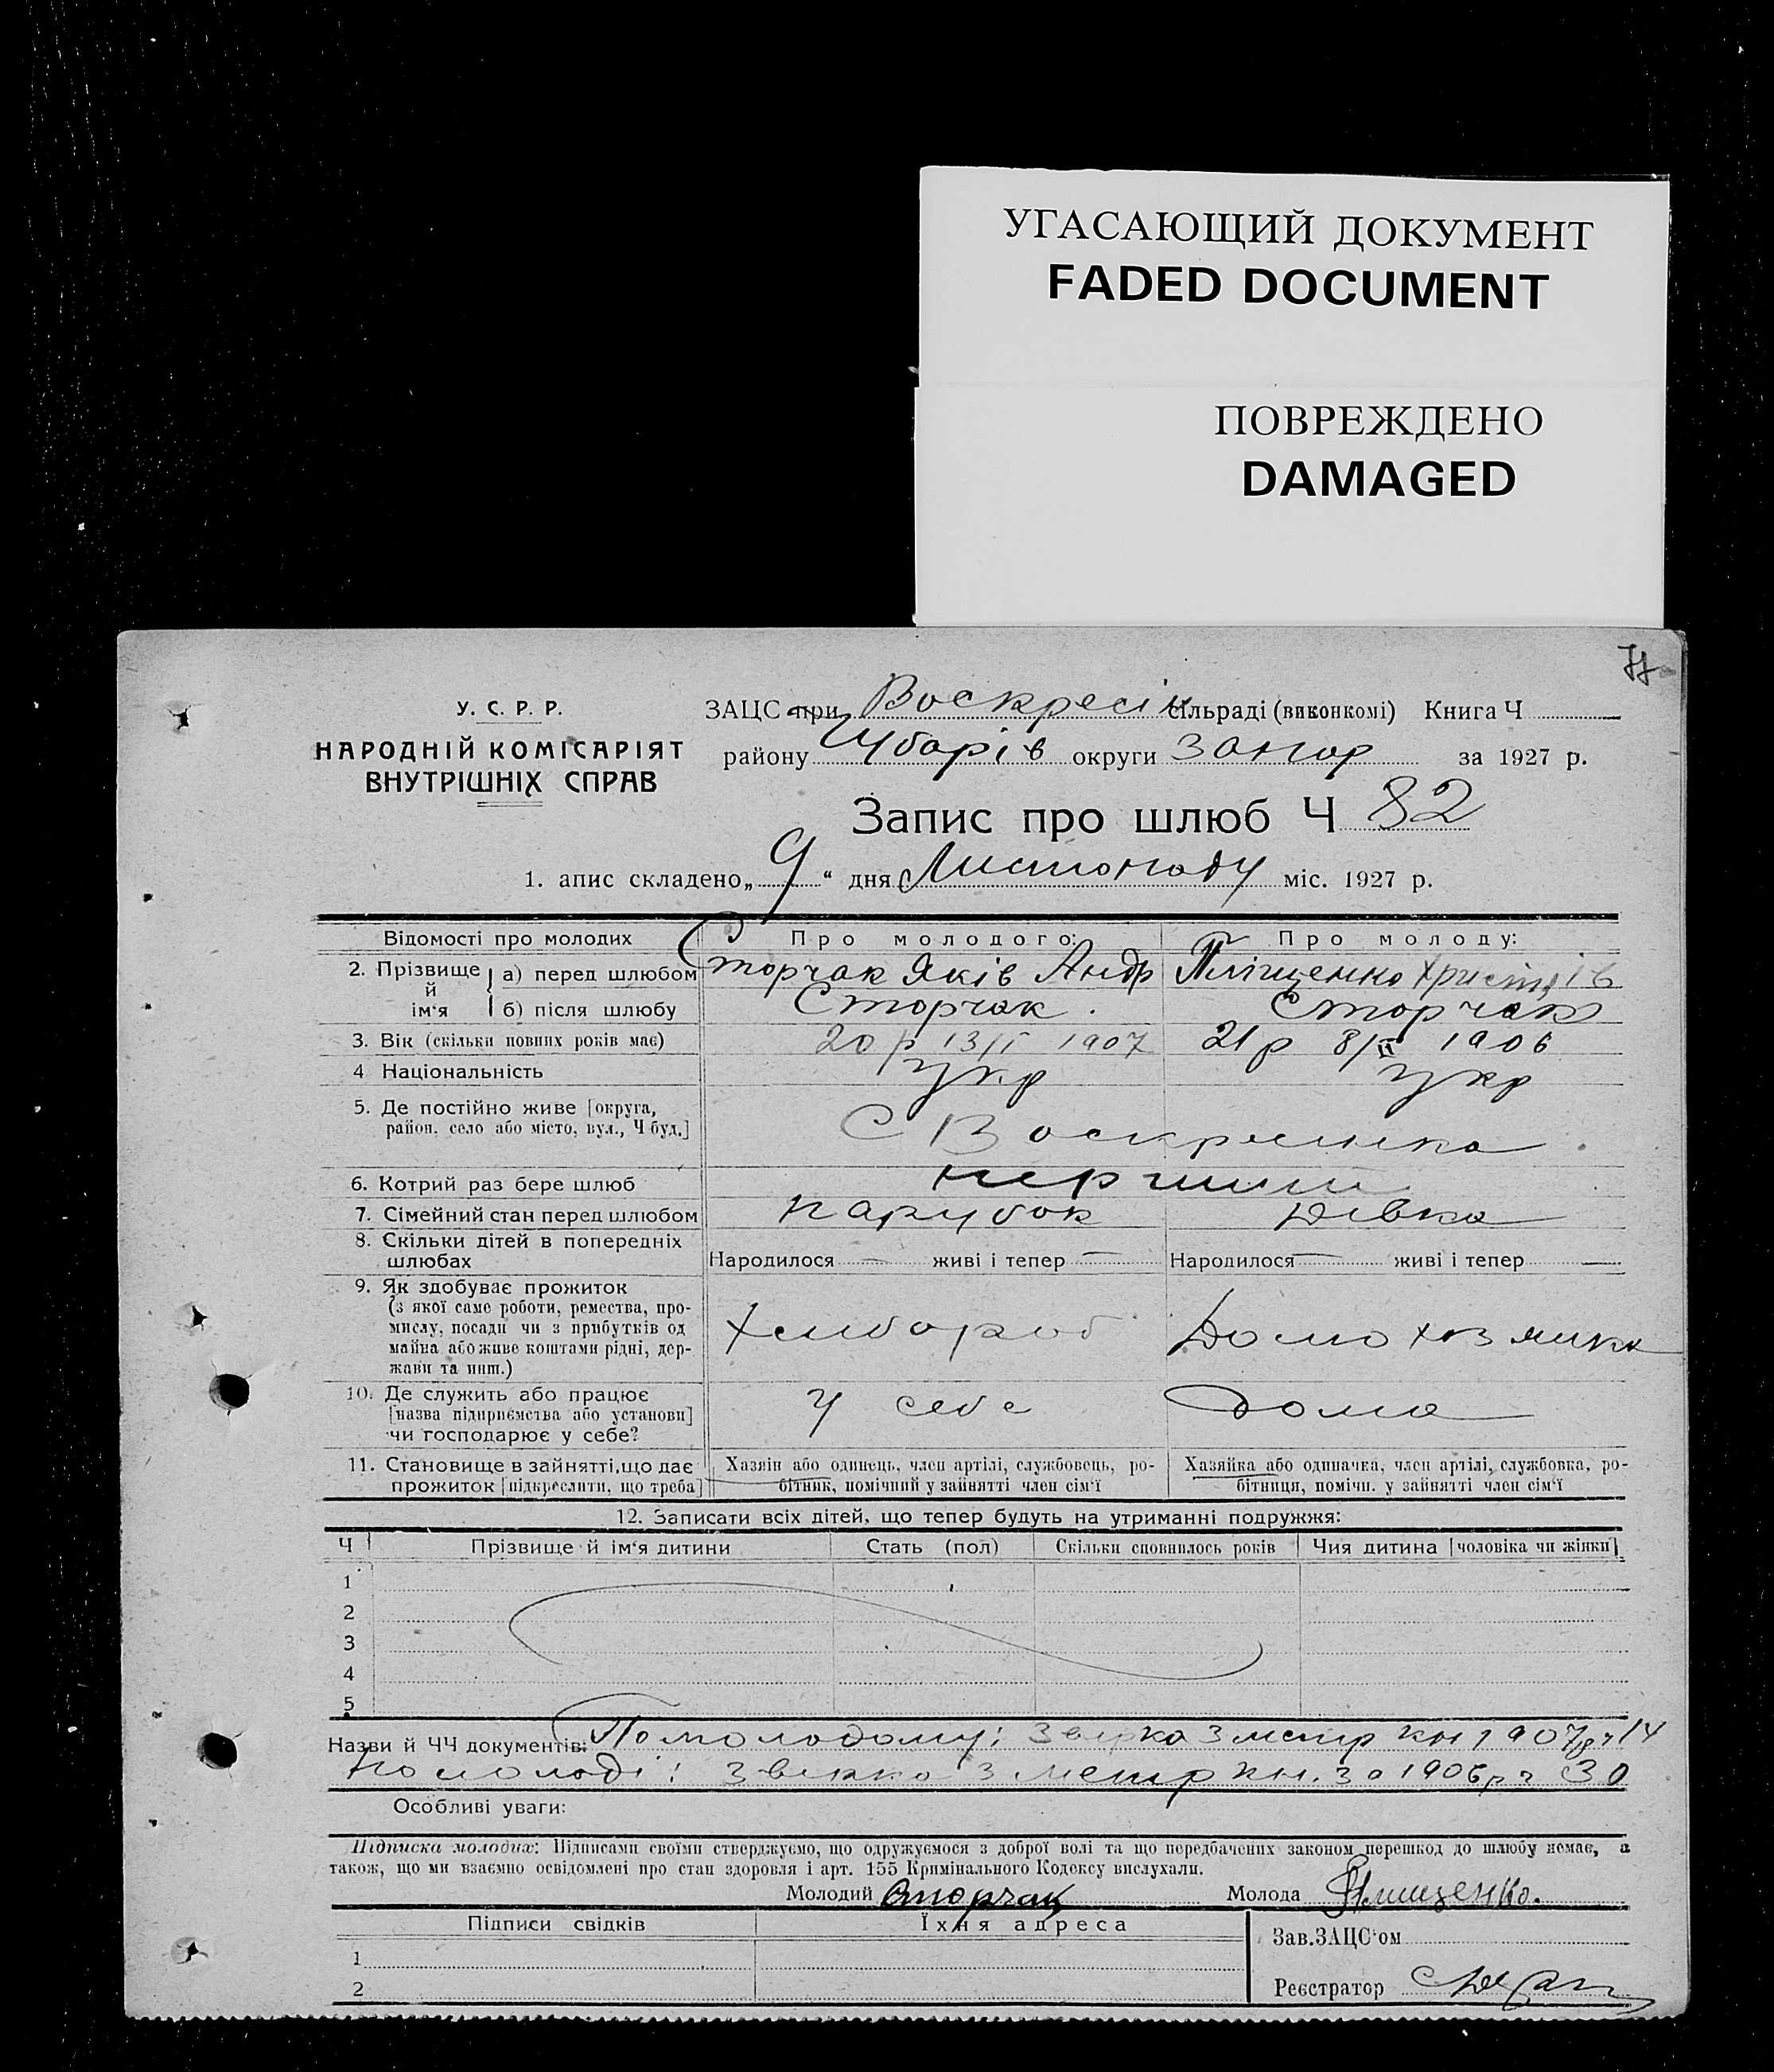 УГАСАЮЩИЙ ДОКУМЕНТ
FADED DOCUMENT
ПОВРЕЖДЕНО
DAMAGED
У. С. Р. Р.
НАРОДНІЙ КОМІСАРІЯТ
ВНУТРІШНІХ СПРАВ
ЗАЦС при Воскресін сільраді (виконкомі) Книга Ч
району Чубарів округи Запор за 1927 р.
Запис про шлюб Ч 82
1. апис складено „9“ дня Листопаду міс. 1927 р.
Відомості про молодих Про молодого: Про молоду:
2. Прізвище й ім‘я а) перед шлюбом Сторчак Яків Андр Пліщенко Христя ів
б) після шлюбу Сторчак. Сторчак
3. Вік (скільки повних років має) 20 р 13/I 1907 21 р 8/II 1906
4 Національність укр укр
5. Де постійно живе [округа,
район. село або місто, вул., Ч буд.] С Воскресенка
6. Котрий раз бере шлюб перший
7. Сімейний стан перед шлюбом парубок дівка
8. Скільки дітей в попередніх
шлюбах Народилося — живі і тепер — Народилося — живі і тепер —
9. Як здобуває прожиток
(з якої саме роботи, ремества, про-
мислу, посади чи з прибутків од
майна або живе коштами рідні, дер-
жави та инш.) Хлибороб Домохозяика
10. Де служить або працює
[назва підприємства або установи]
чи господарює у себе? У себе дома
11. Становище в зайнятті, що дає
прожиток [підкреслити, що треба]
Хазяїн або одинець, член артілі, службовець, ро-
бітник, помічний у зайнятті член сім‘ї
Хазяйка або одиначка, член артілі, службовка, ро-
бітниця, помічн. у зайнятті член сім‘ї
12. Записати всіх дітей, що тепер будуть на утриманні подружжя:
Ч Прізвище й ім‘я дитини Стать (пол) Скільки сповнилось років Чия дитина [чоловіка чи жінки]
1
2
3
4
5
Назви й ЧЧ документів: По молодому: з метр кн 1907 р ч 14
по молоді: з метр кн. за 1906 р ч 30
Особливі уваги:
Підписка молодих: Підписами своїми стверджуємо, що одружуємося з доброї волі та що передбачених законом перешкод до шлюбу немає, а
також, що ми взаємно освідомлені про стан здоровля і арт. 155 Кримінального Кодексу вислухали.
Молодий Сторчак Молода Плищенко.
Підписи свідків Їхня адреса
Зав.ЗАЦС‘ом
1
2
Реєстратор